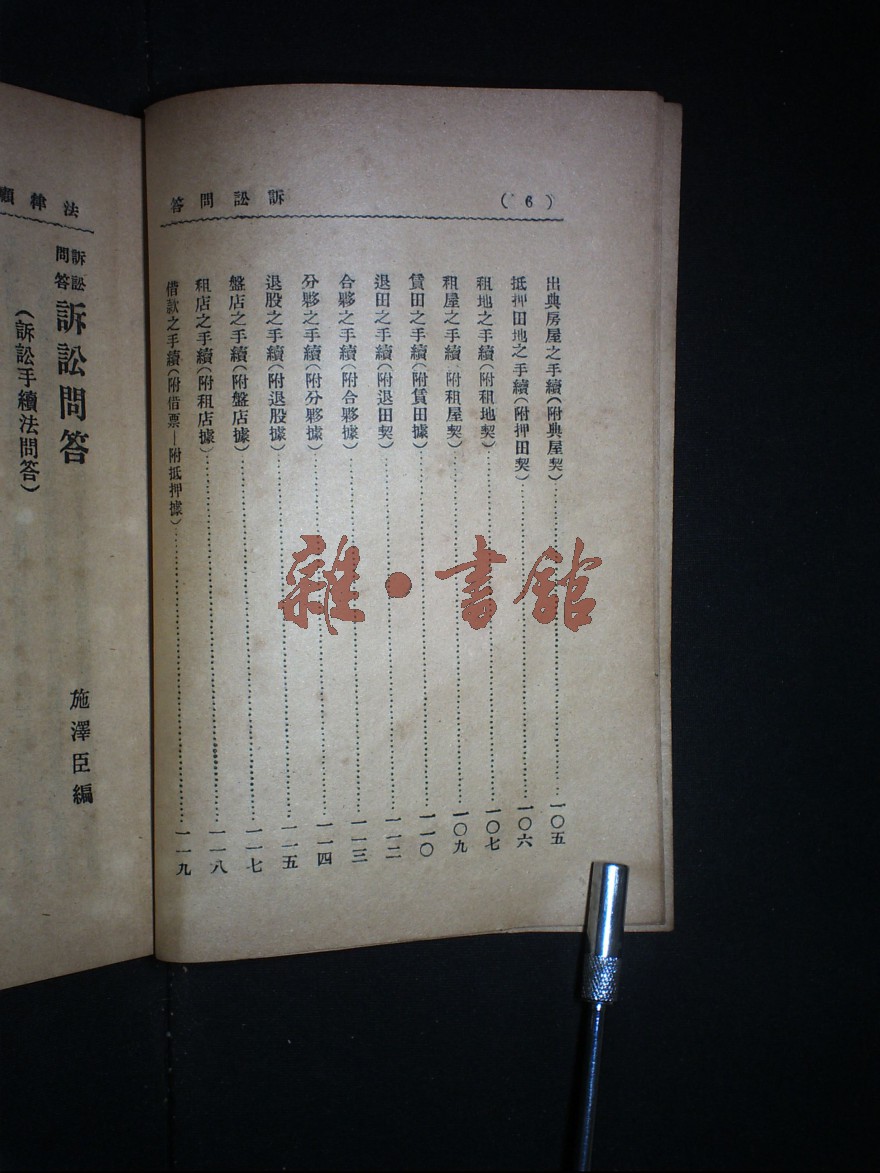 (6)
訴訟問答
出典房屋之手續(附典屋契)……一〇五
抵押田地之手續(附押田契)……一〇六
租地之手續(附租地契)……一〇七
租屋之手續(附租屋契)……一〇九
賃田之手續(附賃田據)……一一〇
退田之手續(附退田契)……一一二
合夥之手續(附合夥據)……一一三
分夥之手續(附分夥據)……一一四
退股之手續(附退股據)……一一五
盤店之手續(附盤店據)……一一七
租店之手續(附租店據)……一一八
借款之手續(附借票—附抵押據)……一一九
法律顧
訴訟問答 訴訟問答
施澤臣編
(訴訟手續法問答)
雜·書館